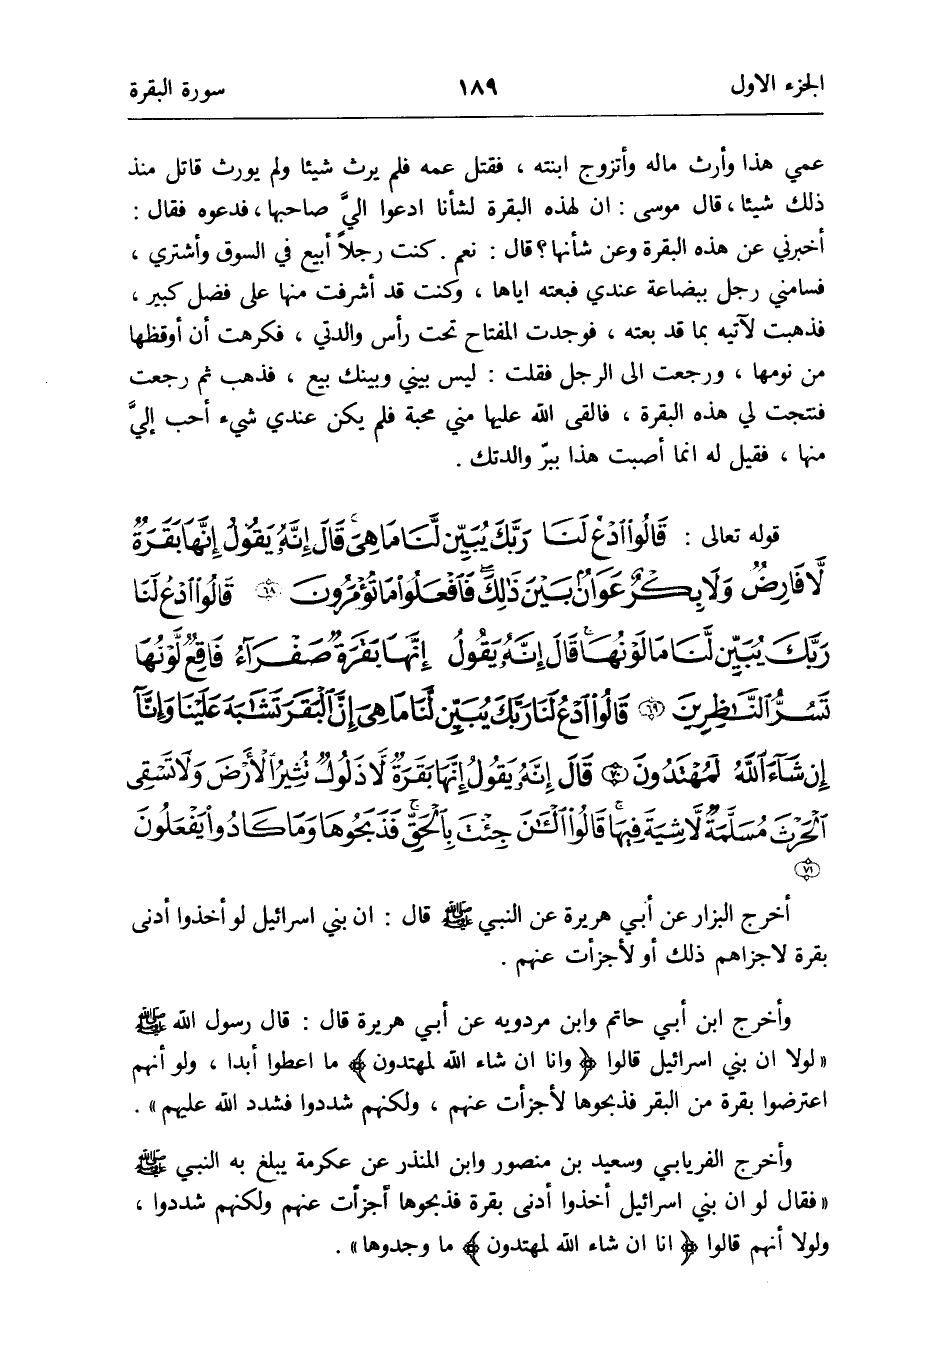 الجزء الاول ١٨٩ سورة البقرة
عمي هذا وأرث ماله وأتزوج ابنته ، فقتل عمه فلم يرث شيئا ولم يورث قاتل منذ
ذلك شيئا ، قال موسى : ان لهذه البقرة لشأنا ادعوا اليَّ صاحبها ، فدعوه فقال :
أخبرني عن هذه البقرة وعن شأنها ؟ قال : نعم . كنت رجلاً أبيع في السوق وأشتري ،
فسامني رجل ببضاعة عندي فبعته اياها ، وكنت قد أشرفت منها على فضل كبير ،
فذهبت لآتيه بما قد بعته ، فوجدت المفتاح تحت رأس والدتي ، فكرهت أن أوقظها
من نومها ، ورجعت الى الرجل فقلت : ليس بيني وبينك بيع ، فذهب ثم رجعت
فنتجت لي هذه البقرة ، فالقى الله عليها مني محبة فلم يكن عندي شيء أحب إليَّ
منها ، فقيل له انما أصبت هذا ببرّ والدتك .
قوله تعالى : قَالُوا۟ ٱدْعُ لَنَا رَبَّكَ يُبَيِّن لَّنَا مَا هِىَ ۚ قَالَ إِنَّهُۥ يَقُولُ إِنَّهَا بَقَرَةٌ
لَّا فَارِضٌ وَلَا بِكْرٌ عَوَانٌۢ بَيْنَ ذَٰلِكَ ۖ فَٱفْعَلُوا۟ مَا تُؤْمَرُونَ ﴿٦٨﴾ قَالُوا۟ ٱدْعُ لَنَا
رَبَّكَ يُبَيِّن لَّنَا مَا لَوْنُهَا ۚ قَالَ إِنَّهُۥ يَقُولُ إِنَّهَا بَقَرَةٌ صَفْرَآءُ فَاقِعٌ لَّوْنُهَا
تَسُرُّ ٱلنَّٰظِرِينَ ﴿٦٩﴾ قَالُوا۟ ٱدْعُ لَنَا رَبَّكَ يُبَيِّن لَّنَا مَا هِىَ إِنَّ ٱلْبَقَرَ تَشَٰبَهَ عَلَيْنَا وَإِنَّآ
إِن شَآءَ ٱللَّهُ لَمُهْتَدُونَ ﴿٧٠﴾ قَالَ إِنَّهُۥ يَقُولُ إِنَّهَا بَقَرَةٌ لَّا ذَلُولٌ تُثِيرُ ٱلْأَرْضَ وَلَا تَسْقِى
ٱلْحَرْثَ مُسَلَّمَةٌ لَّا شِيَةَ فِيهَا ۚ قَالُوا۟ ٱلْـَٰٔنَ جِئْتَ بِٱلْحَقِّ ۚ فَذَبَحُوهَا وَمَا كَادُوا۟ يَفْعَلُونَ
﴿٧١﴾
أخرج البزار عن أبي هريرة عن النبي ﷺ قال : ان بني اسرائيل لو أخذوا أدنى
بقرة لاجزاهم ذلك أو لأجزأت عنهم .
وأخرج ابن أبي حاتم وابن مردويه عن أبي هريرة قال : قال رسول الله ﷺ
« لولا ان بني اسرائيل قالوا ﴿ وانا ان شاء الله لمهتدون ﴾ ما اعطوا أبدا ، ولو أنهم
اعترضوا بقرة من البقر فذبحوها لأجزأت عنهم ، ولكنهم شددوا فشدد الله عليهم » .
وأخرج الفريابي وسعيد بن منصور وابن المنذر عن عكرمة يبلغ به النبي ﷺ
« فقال لو ان بني اسرائيل أخذوا أدنى بقرة فذبحوها أجزأت عنهم ولكنهم شددوا ،
ولولا أنهم قالوا ﴿ انا ان شاء الله لمهتدون ﴾ ما وجدوها » .